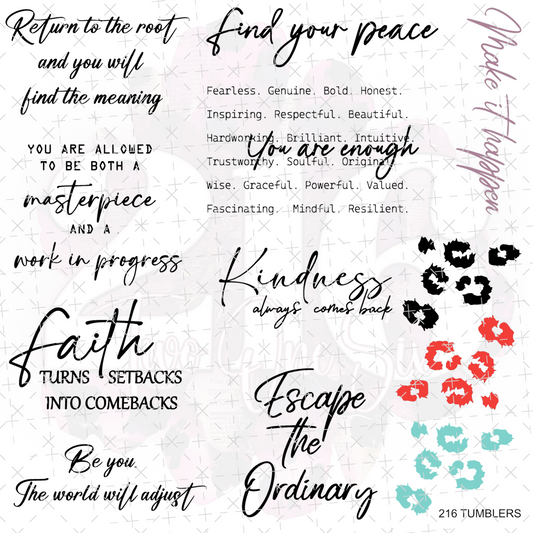 Return to the root
and you will
find the meaning
YOU ARE ALLOWED
TO BE BOTH A
masterpiece
AND A
work in progress
Faith
TURNS SETBACKS
INTO COMEBACKS
Be you.
The world will adjust
Find your peace
Fearless. Genuine. Bold. Honest.
Inspiring. Respectful. Beautiful.
Hardworking. Brilliant. Intuitive.
You are enough
Trustworthy. Soulful. Original.
Wise. Graceful. Powerful. Valued.
Fascinating. Mindful. Resilient.
Kindness
always comes back
Escape
the
Ordinary
Make it happen
216 TUMBLERS